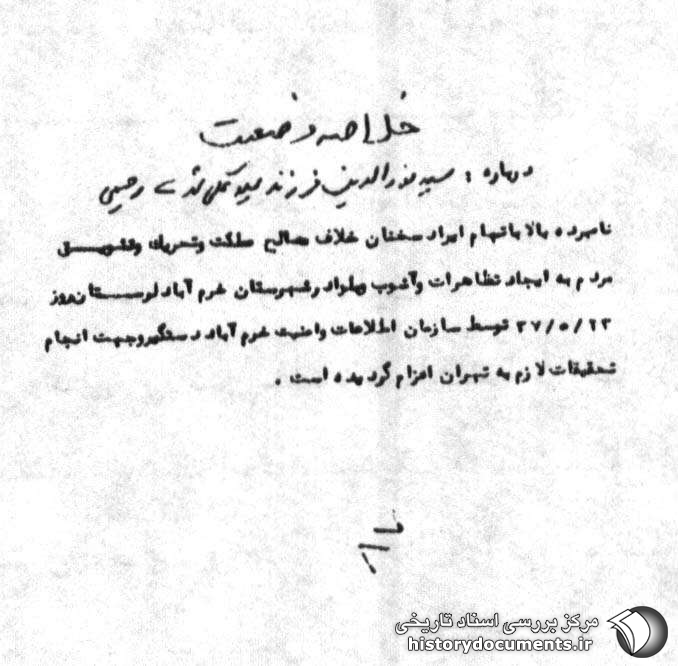 خلاصه وضعیت
درباره : سید نورالدین فرزند سید رحیمی
نامبرده بالا باتهام ایراد سخنان خلاف مصالح مملکت وتحریک وتشویق
مردم به ایجاد تظاهرات وآشوب وبلوا در شهرستان خرم آباد لرستان روز
۳۷/۵/۲۳ توسط سازمان اطلاعات وامنیت خرم آباد دستگیر وجهت انجام
تحقیقات لازم به تهران اعزام گردیده است .
مرکز بررسی اسناد تاریخی
historydocuments.ir